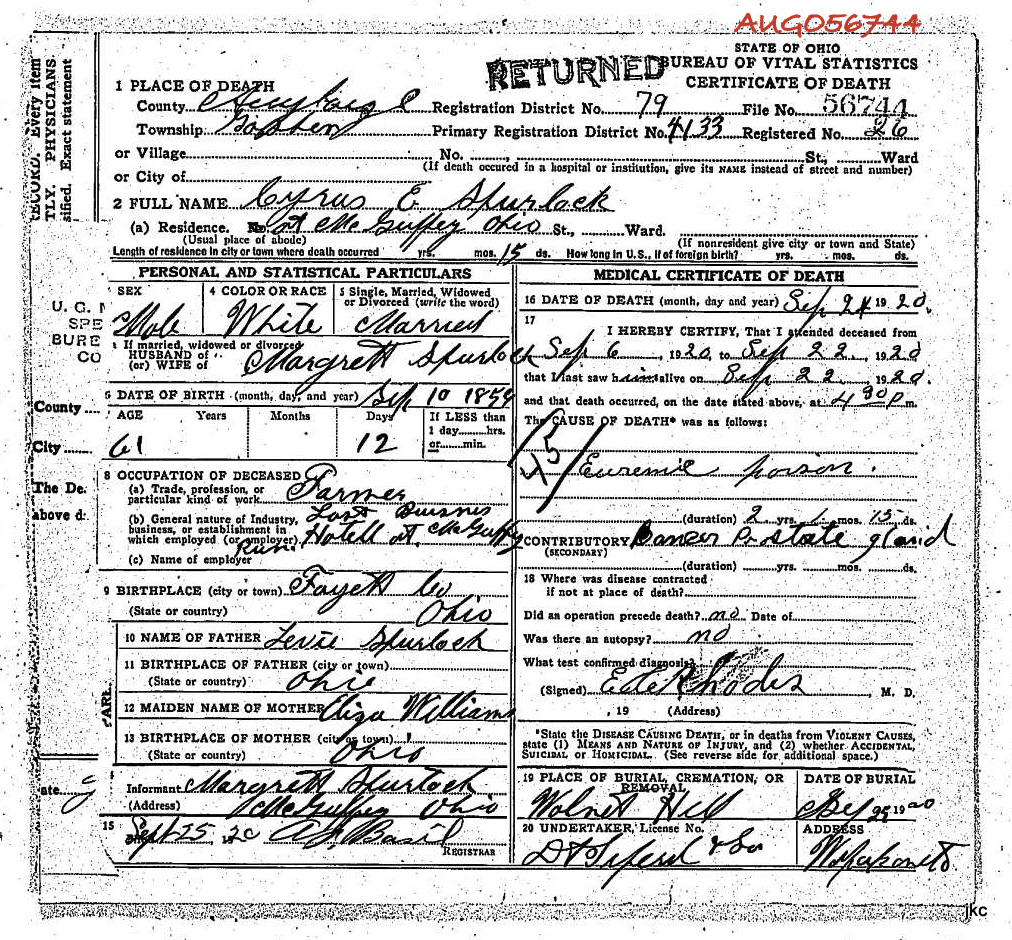 AUGO56744
STATE OF OHIO
RETURNED
BUREAU OF VITAL STATISTICS
CERTIFICATE OF DEATH
RECORD. Every item
PHYSICIANS.
Exact statement
1 PLACE OF DEATH
County Auglaize Registration District No. 79 File No. 56744
Township Goshen Primary Registration District No. 4133 Registered No. 26
or Village No. St., Ward
(If death occured in a hospital or institution, give its NAME instead of street and number)
or City of
2 FULL NAME Cyrus E Spurlock
(a) Residence. No. at McGuffey Ohio St., Ward.
(Usual place of abode) (If nonresident give city or town and State)
Length of residence in city or town where death occurred yrs. mos. 15 ds. How long in U.S., if of foreign birth? yrs. mos. ds.
PERSONAL AND STATISTICAL PARTICULARS
SEX 4 COLOR OR RACE 5 Single, Married, Widowed
or Divorced (write the word)
Male White Married
If married, widowed or divorced
HUSBAND of
(or) WIFE of Margrett Spurlock
6 DATE OF BIRTH (month, day, and year) Sep 10 1859
AGE Years Months Days If LESS than
1 day hrs.
or min.
61 12
8 OCCUPATION OF DECEASED
(a) Trade, profession, or
particular kind of work Farmer
(b) General nature of Industry,
business, or establishment in
which employed (or employer) Last Buisnes
Run Hotell at McGuffy
(c) Name of employer
9 BIRTHPLACE (city or town) Fayett Co
(State or country) Ohio
10 NAME OF FATHER Levie Spurlock
11 BIRTHPLACE OF FATHER (city or town)
(State or country) Ohio
12 MAIDEN NAME OF MOTHER Eliza Williams
13 BIRTHPLACE OF MOTHER (city or town)
(State or country) Ohio
Informant Margrett Spurlock
(Address) McGuffey Ohio
15
Sept 25, 20
REGISTRAR
MEDICAL CERTIFICATE OF DEATH
16 DATE OF DEATH (month, day and year) Sep 24 1920.
17
I HEREBY CERTIFY, That I attended deceased from
Sep 6, 1920, to Sep 22, 1920
that I last saw him alive on Sep 22, 1920.
and that death occurred, on the date stated above, at 4 30 P m.
The CAUSE OF DEATH* was as follows:
45
Euremic poison.
(duration) 2 yrs. 1 mos. 15 ds.
CONTRIBUTORY Cancer Prostate gland
(SECONDARY)
(duration) yrs. mos. ds.
18 Where was disease contracted
if not at place of death?
Did an operation precede death? no Date of
Was there an autopsy? no
What test confirmed diagnosis?
(Signed) Rhodes, M. D.
, 19 (Address)
*State the DISEASE CAUSING DEATH, or in deaths from VIOLENT CAUSES,
state (1) MEANS AND NATURE OF INJURY, and (2) whether ACCIDENTAL,
SUICIDAL or HOMICIDAL. (See reverse side for additional space.)
19 PLACE OF BURIAL, CREMATION, OR
REMOVAL
DATE OF BURIAL
Walnet Hill Sep 25 1920
20 UNDERTAKER, License No. ADDRESS
& Son
U. G.
SPE
BURE
CO
County
City
The De
above d
ate
PAR
jkc